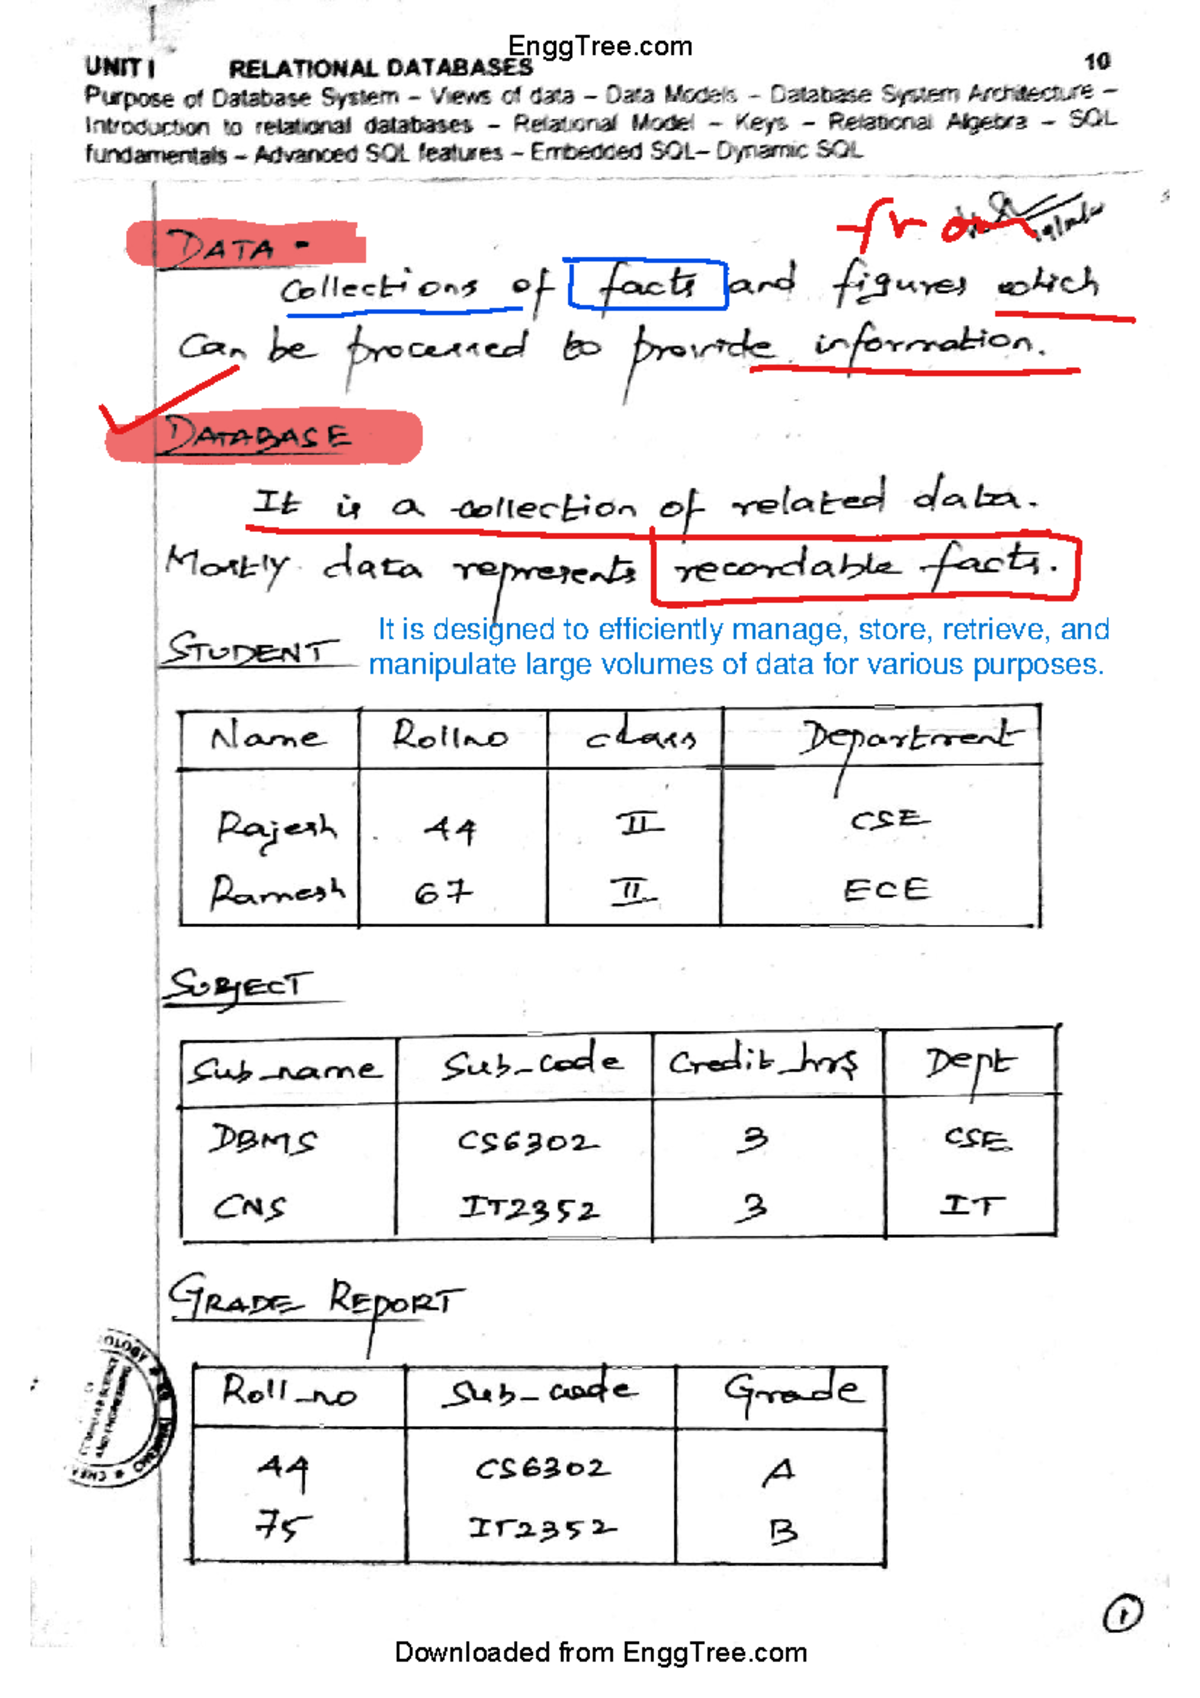 EnggTree.com
UNIT I RELATIONAL DATABASES 10
Purpose of Database System – Views of data – Data Models – Database System Architecture –
Introduction to relational databases – Relational Model – Keys – Relational Algebra – SQL
fundamentals – Advanced SQL features – Embedded SQL– Dynamic SQL
from
DATA -
Collections of facts and figures which
can be processed to provide information.
DATABASE
It is a collection of related data.
Mostly data represents recordable facts.
It is designed to efficiently manage, store, retrieve, and
manipulate large volumes of data for various purposes.
STUDENT
Name Rollno class Department
Rajesh 44 II CSE
Ramesh 67 II ECE
SUBJECT
Sub_name Sub_code Credit_hrs Dept
DBMS CS6302 3 CSE
CNS IT2352 3 IT
GRADE REPORT
Roll_no Sub_code Grade
44 CS6302 A
75 IT2352 B
COMPUTER SCIENCE
AND ENGINEERING
1
Downloaded from EnggTree.com